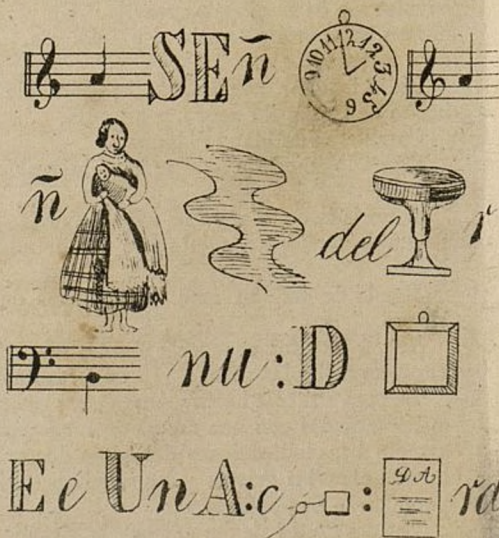 SEñ 9 10 11 12 1 2 3 4 5 6
ñ del r
nu : D
E e UnA:c : DA rd